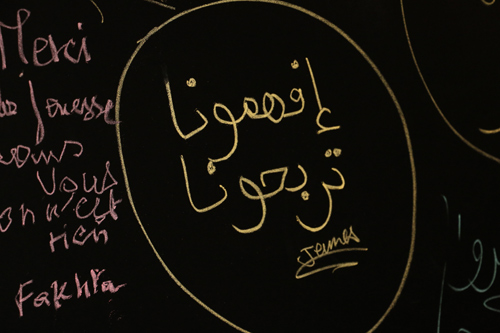 Merci
jeunesse
vous
on n'est
rien
Fakhra
إفهمونا
تربحونا
Jeunes